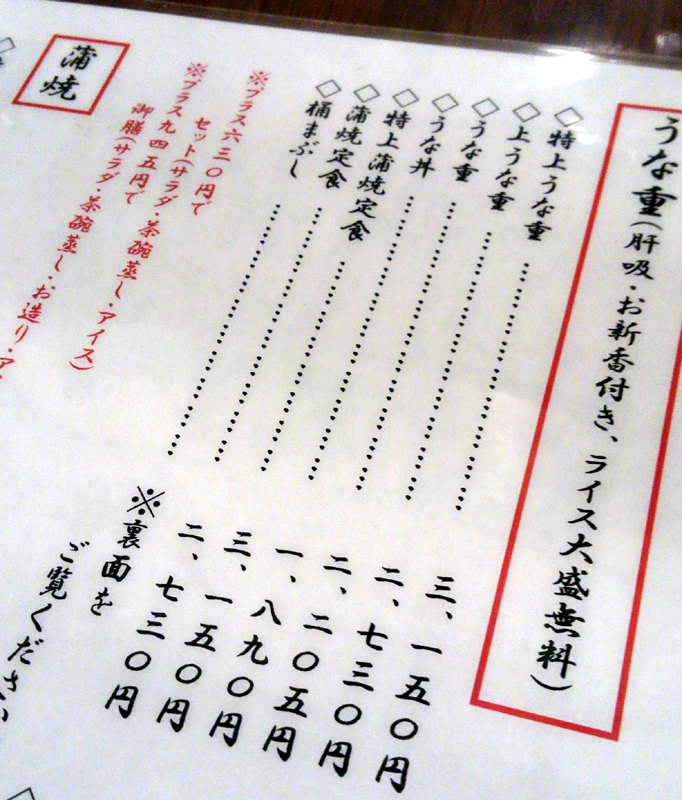 うな重(肝吸・お新香付き、ライス大盛無料)
◇特上うな重……三、一五〇円
◇上うな重……二、七三〇円
◇うな重……二、二〇五円
◇うな丼……一、八九〇円
◇特上蒲焼定食……三、一五〇円
◇蒲焼定食……二、七三〇円
◇桶まぶし……※裏面を
ご覧ください
※プラス六三〇円で
セット(サラダ・茶碗蒸し・アイス)
※プラス九四五円で
御膳(サラダ・茶碗蒸し・お造り・ア
蒲焼